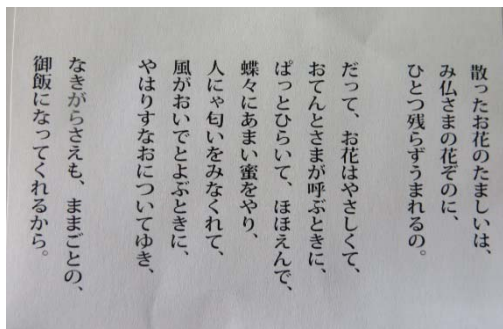 散ったお花のたましいは、
み仏さまの花ぞのに、
ひとつ残らずうまれるの。
だって、お花はやさしくて、
おてんとさまが呼ぶときに、
ぱっとひらいて、ほほえんで、
蝶々にあまい蜜をやり、
人にゃ匂いをみなくれて、
風がおいでとよぶときに、
やはりすなおについてゆき、
なきがらさえも、ままごとの、
御飯になってくれるから。